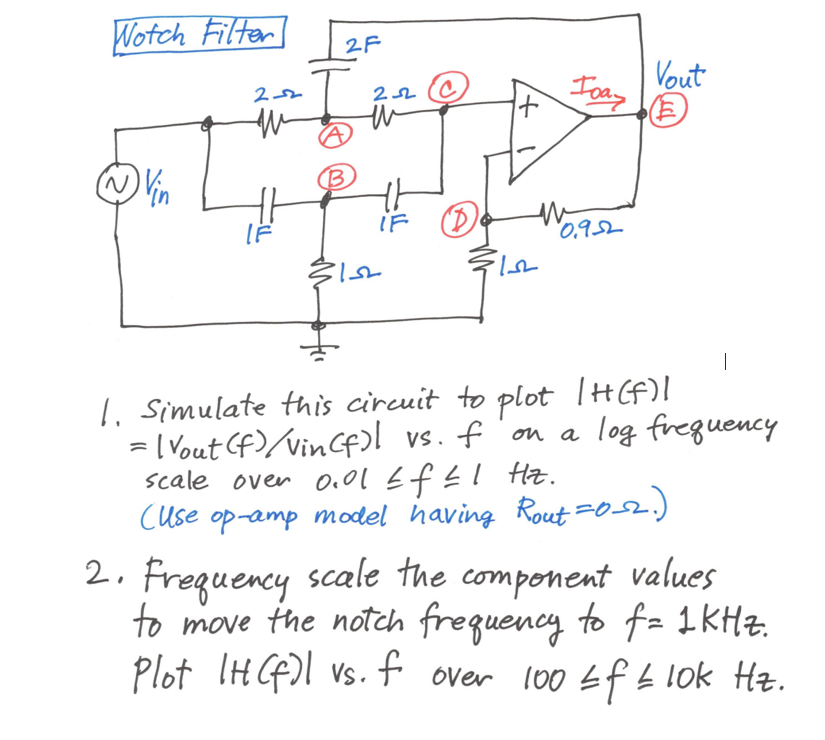 Notch Filter
2F
Ioa
Vout
E
2Ω
2Ω
C
+
A
−
Vin
B
1F
1F
D
0.9Ω
1Ω
1Ω
1. Simulate this circuit to plot |H(f)|
= |Vout(f)/Vin(f)| vs. f on a log frequency
scale over 0.01 ≤ f ≤ 1 Hz.
(Use op-amp model having Rout=0Ω.)
2. Frequency scale the component values
to move the notch frequency to f= 1KHz.
Plot |H(f)| vs. f over 100 ≤ f ≤ 10k Hz.